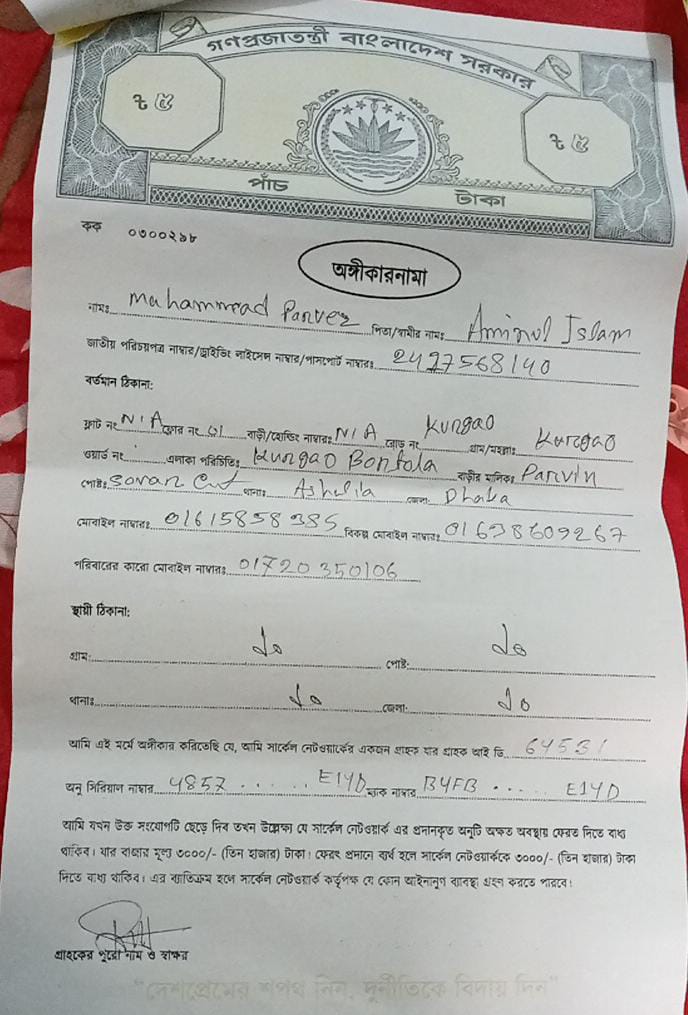 গণপ্রজাতন্ত্রী বাংলাদেশ সরকার
৳ ৫ ৳ ৫
পাঁচ টাকা
কক ০৩০০২৯৮
অঙ্গীকারনামা
নামঃ Muhammad Parvez পিতা/স্বামীর নামঃ Aminul Islam
জাতীয় পরিচয়পত্র নাম্বার/ড্রাইভিং লাইসেন্স নাম্বার/পাসপোর্ট নাম্বারঃ 2497568140
বর্তমান ঠিকানা:
ফ্লাট নং N/A ফ্লোর নং 01 বাড়ী/হোল্ডিং নাম্বারঃ N/A রোড নং Kurgao গ্রাম/মহল্লাঃ Kurgao
ওয়ার্ড নং এলাকা পরিচিতিঃ Kurgao Bontola বাড়ীর মালিকঃ Parvin
পোষ্টঃ Savar Cnt থানাঃ Ashulia জেলা: Dhaka
মোবাইল নাম্বারঃ 01615858385 বিকল্প মোবাইল নাম্বারঃ 01638609267
পরিবারের কারো মোবাইল নাম্বারঃ 01720350106
স্থায়ী ঠিকানা:
গ্রাম: do পোষ্ট: do
থানাঃ do জেলা: do
আমি এই মর্মে অঙ্গীকার করিতেছি যে, আমি সার্কেল নেটওয়ার্কের একজন গ্রাহক যার গ্রাহক আই ডি 64531
অনু সিরিয়াল নাম্বার 4857 ...... E14D ম্যাক নাম্বার B4FB ...... E14D
আমি যখন উক্ত সংযোগটি ছেড়ে দিব তখন উল্লেক্ষ্য যে সার্কেল নেটওয়ার্ক এর প্রদানকৃত অনুটি অক্ষত অবস্থায় ফেরত দিতে বাধ্য
থাকিব। যার বাজার মূল্য ৩০০০/- (তিন হাজার) টাকা। ফেরৎ প্রদানে ব্যর্থ হলে সার্কেল নেটওয়ার্ককে ৩০০০/- (তিন হাজার) টাকা
দিতে বাধ্য থাকিব। এর ব্যতিক্রম হলে সার্কেল নেটওয়ার্ক কর্তৃপক্ষ যে কোন আইনানুগ ব্যবস্থা গ্রহন করতে পারবে।
গ্রাহকের পুরো নাম ও স্বাক্ষর
"দেশপ্রেমের শপথ নিন, দুর্নীতিকে বিদায় দিন"